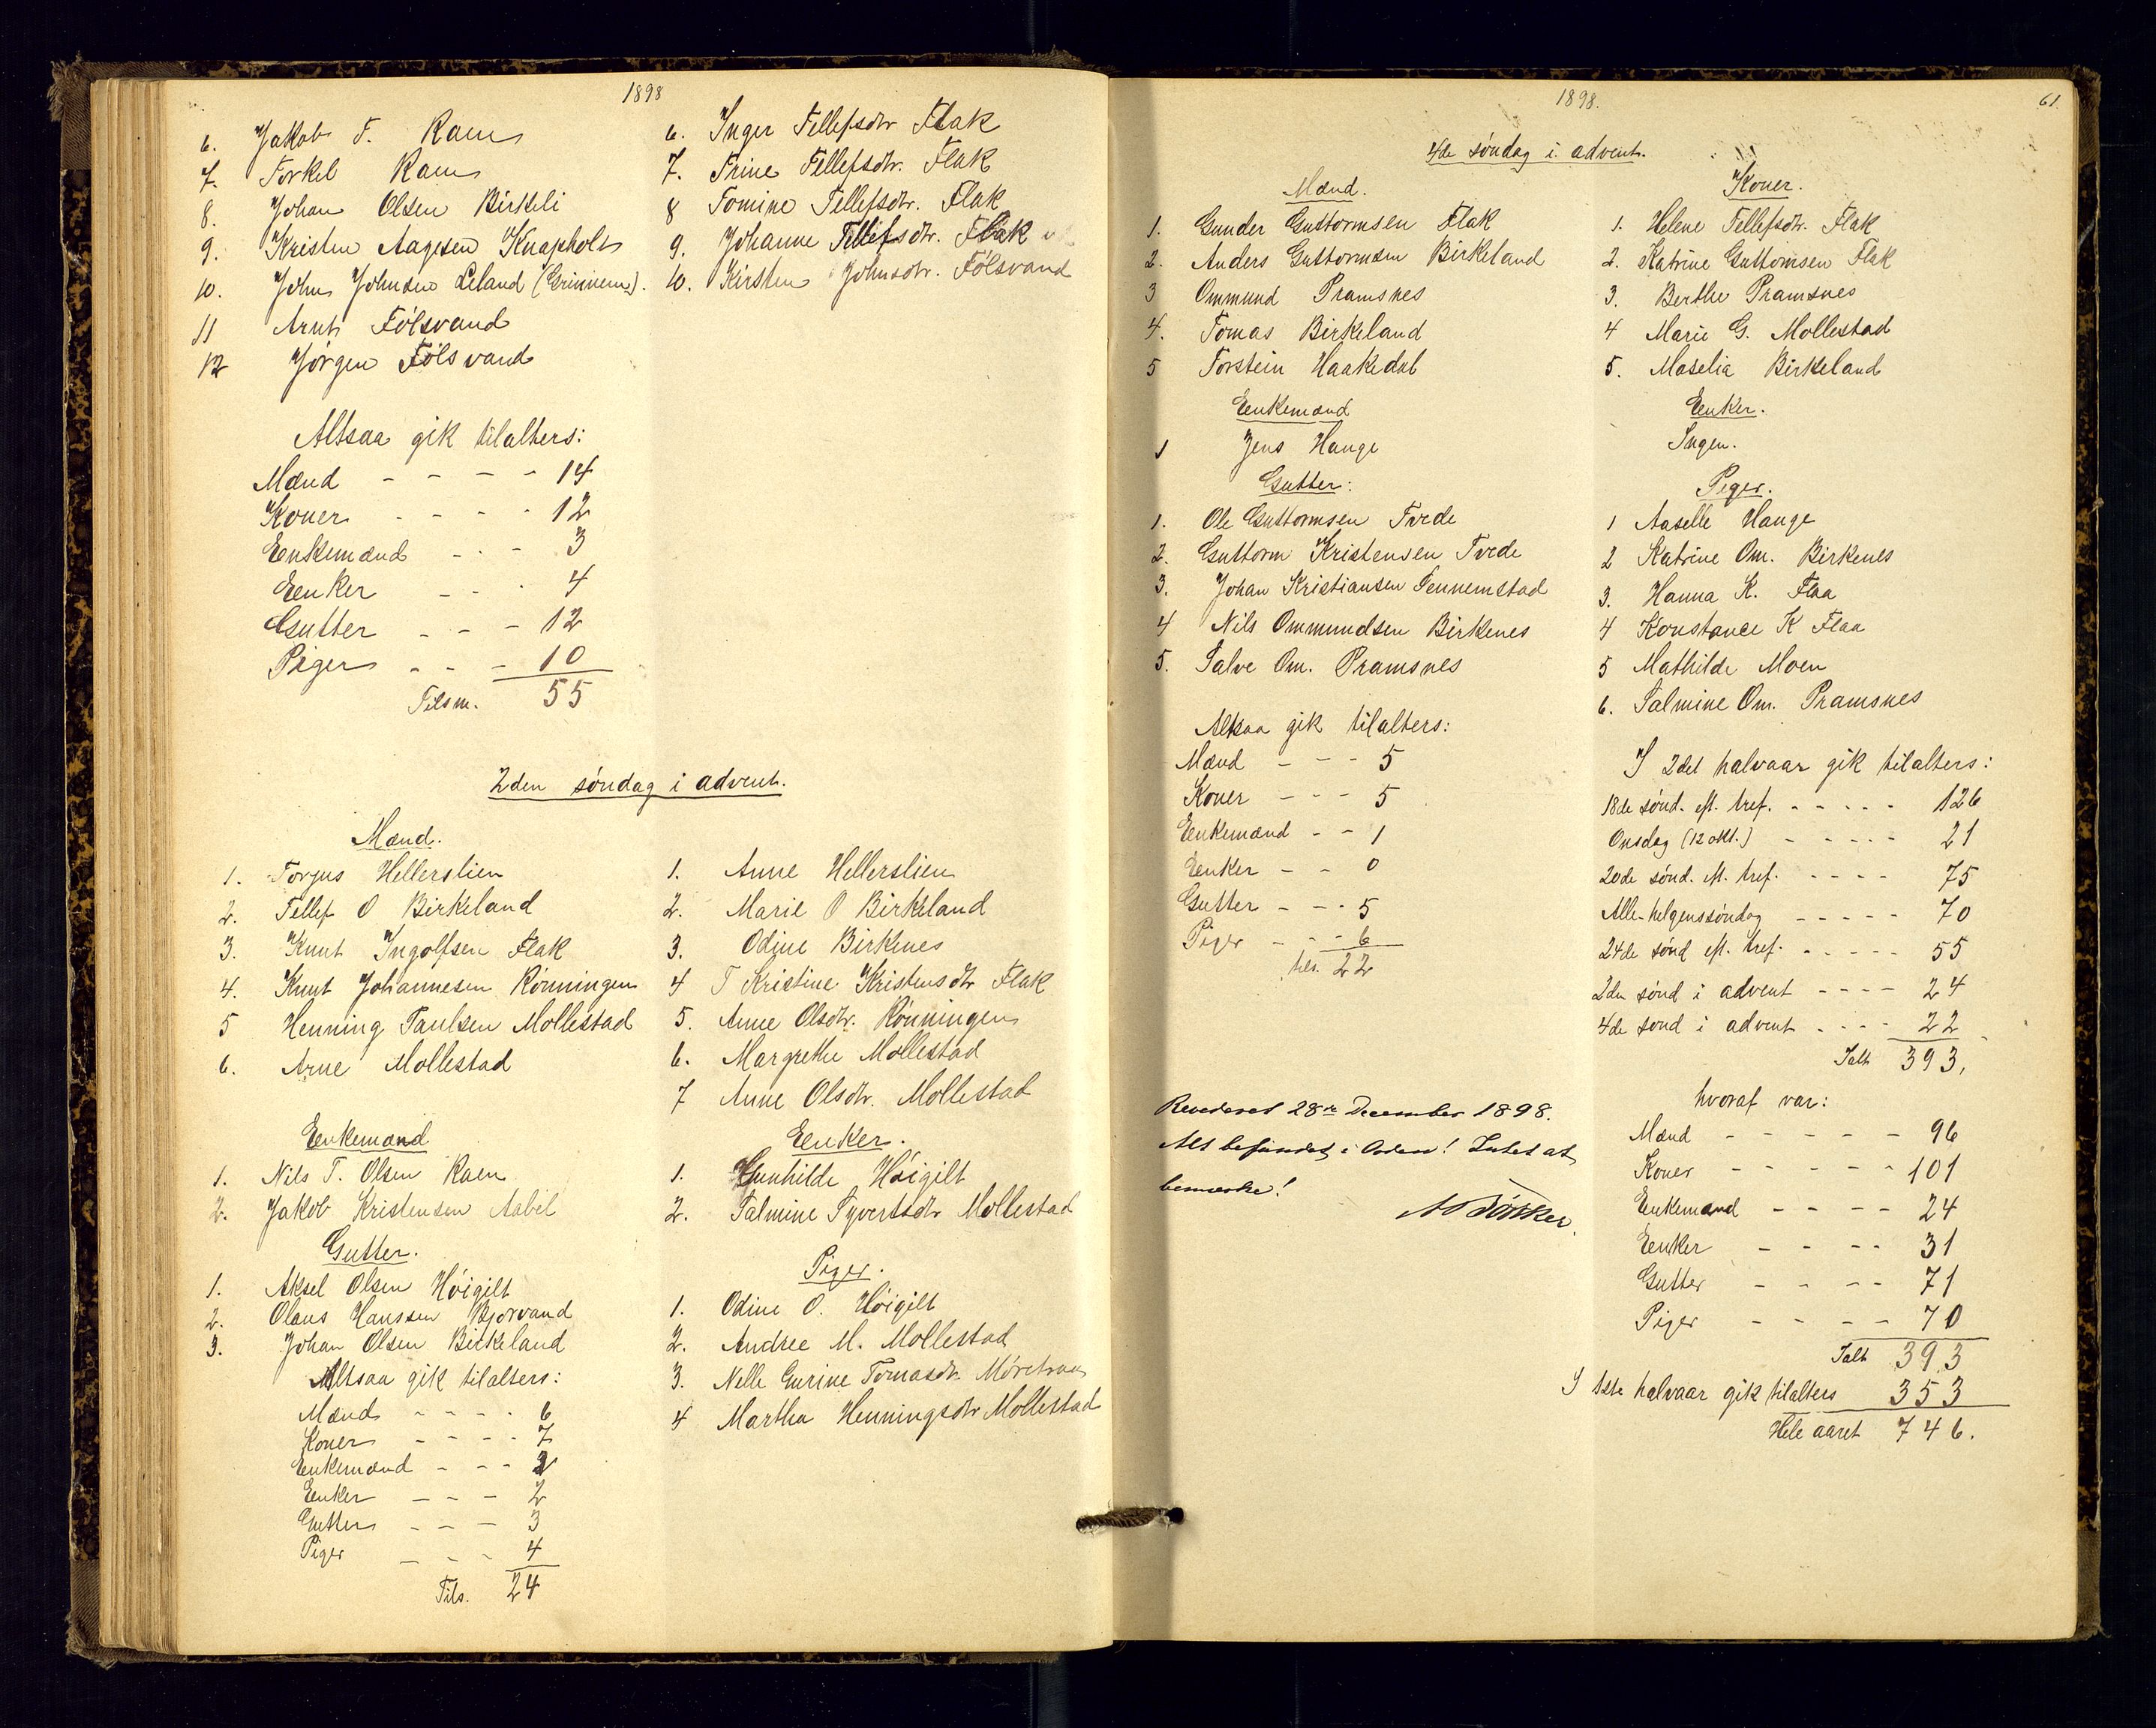 1898
6. Jakob T. Raen
7. Torkel Raen
8. Johan Olsen Birkeli
9. Kristen Aagesen Knapholt
10. John Johnsen Leland (Grinnem).
11 Arnt Fölsvand
12 Jörgen Fölsvand
6. Inger Tellefsdtr Flak
7. Trine Tellefsdtr. Flak
8 Tomine Tellefsdtr. Flak
9. Johanne Tellefsdtr. Flak
10. Kirsten Johnsdtr. Fölsvand
Altsaa gik tilalters:
Mænd - - - - 14
Koner - - - - 12
Eenkemænd - - - 3
Eenker - - - 4
Gutter - - - 12
Piger - - - 10
Tilsm. 55
2den söndag i advent.
Mænd.
1. Torjus Hellerslien
2. Tellef O Birkeland
3. Knut Ingolfsen Flak
4. Knut Johannesen Rönningen
5 Henning Paulsen Mollestad
6. Arne Mollestad
1. Anne Hellerslien
2. Marie O Birkeland
3. Odine Birkenes
4 T Kristine Kristensdtr Flak
5. Anne Olsdtr. Rönningen
6. Margrethe Mollestad
7 Anne Olsdtr. Mollestad
Eenkemænd
1. Nils T. Olsen Raen
2. Jakob Kristensen Aabel
Eenker.
1. Gunhilde Höigilt
2. Salmine Syvertsdtr Mollestad
Gutter.
1. Aksel Olsen Höigilt
2. Olaus Hanssen Bjorvand
3. Johan Olsen Birkeland
Piger.
1. Odine O. Höigilt
2. Andree M. Mollestad
3. Nelle Gurine Tomasdtr.
4 Martha Henningsdtr Mollestad
Altsaa gik tilalters:
Mænd - - - - 6
Koner - - - - 7
Eenkemænd - - - 2
Eenker - - - 2
Gutter - - - 3
Piger - - - 4
Tils. 24
1898.
61.
4de söndag i advent.
Mænd.
1. Gunder Guttormsen Flak
2. Anders Guttormsen Birkeland
3 Ommund Pramsnes
4. Tomas Birkeland
5 Torstein Haakedal
Koner.
1. Helene Tellefsdtr. Flak
2. Katrine Guttormsen Flak
3. Berthe Pramsnes
4 Marie G. Mollestad
5. Maselia Birkeland
Eenkemænd
1 Jens Hauge
Eenker.
Ingen.
Gutter:
1. Ole Guttormsen Tvede
2. Guttorm Kristensen Tvede
3. Johan Kristiansen Tennemstad
4 Nils Ommundsen Birkenes
5. Salve Om. Pramsnes
Piger.
1 Aaselle Hauge
2 Katrine Om. Birkenes
3. Hanna K. Flaa
4 Konstance K Flaa
5 Mathilde Moen
6. Salmine Om. Pramsnes
Altsaa gik tilalters:
Mænd - - - 5
Koner - - - 5
Eenkemænd - - 1
Eenker - - 0
Gutter - - - 5
Piger - - - 6
tils. 22
Revideret 28de December 1898.
Alt befundet i Orden! Intet at
bemærke!
I 2det halvaar gik tilalters:
18de sönd. eft. tref. - - - - - 126
Onsdag (12 okt.) - - - - - 21
20de sönd. eft. tref. - - - - 75
Alle-helgenssöndag - - - - - 70
24de sönd eft. tref. - - - - - 55
2den sönd i advent - - - - 24
4de sönd i advent - - - - 22
Ialt 393.
hvoraf var:
Mænd - - - - - 96
Koner - - - - - 101
Eenkemænd - - - - 24
Eenker - - - - 31
Gutter - - - - 71
Piger - - - - 70
Ialt 393
I 1ste halvaar gik tilalters 353
Hele aaret 746.